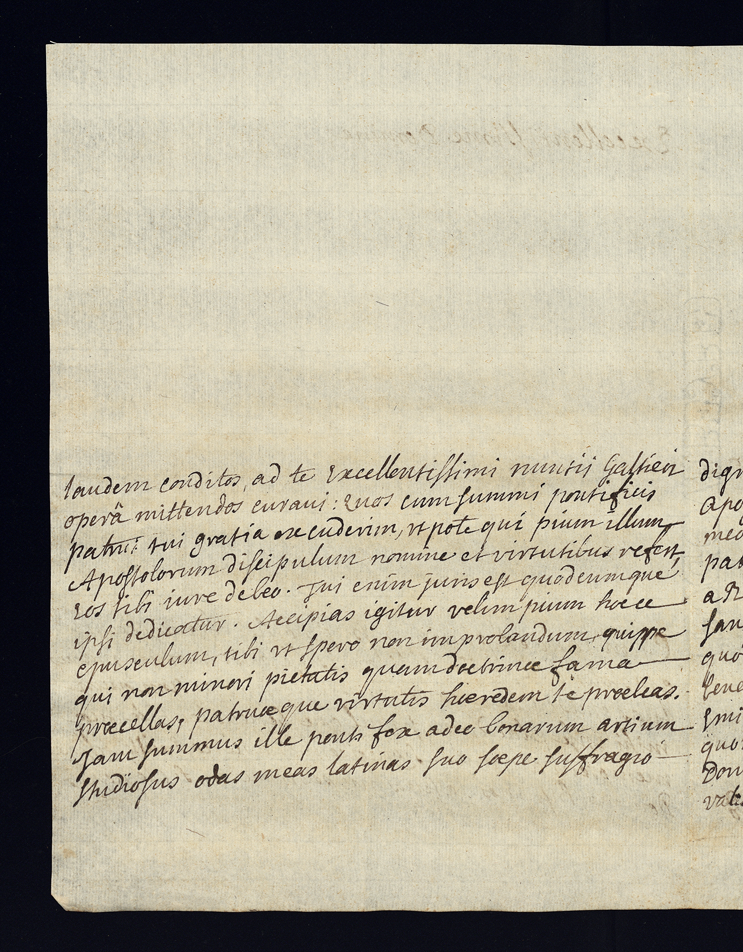 laudem conditos, ad te Excellentissimi nuntii Galtieri
operâ mittendos curavi: quos cum summi pontificis
patrui tui gratia excuderim, vt pote qui pium illum
Apostolorum discipulum nomine et virtutibus refert,
eos tibi iure debeo. Tui enim juris est quodcumque
ipsi dedicatur. Accipias igitur velim pium hocce
opusculum, tibi vt spero non improbandum quippe
qui non minori pietatis quam doctrinæ fama
præcellas, patruæque virtutis hæredem te præbeas.
Jam summus ille pontifex adeo bonarum artium
studiosus odas meas latinas suo sæpe suffragio
dign
apo
meo
pat
san
quo
bene
Emi
quo
Dom